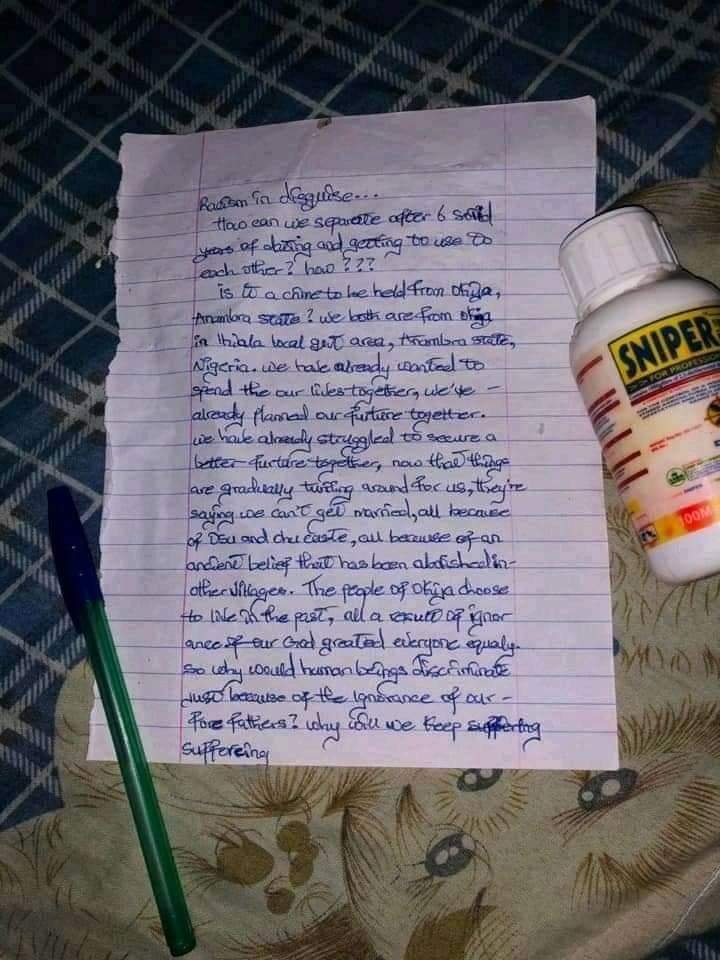 Racism in disguise...
How can we separate after 6 solid
years of dating and getting to use to
each other? how???
is it a crime to be held from Okija,
Anambra state? we both are from Okija
in Ihiala local govt area, Anambra state,
Nigeria. we have already wanted to
spend the our lives together, we've -
already planned our furture together.
we have already struggled to secure a
better furture together, now that things
are gradually turning around for us, they're
saying we can't get married, all because
of Osu and chu caste, all because of an
ancient belief that has been abolished in-
other villages. The people of Okija choose
to live in the past, all a result of ignor
ance of our God greated everyone equaly.
so why would human beings discriminate
just because of the ignorance of our -
fore fathers? why will we keep suffering
suffereing
SNIPER
FOR PROFESSIO
100M